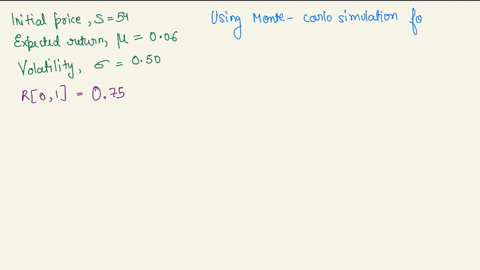 Initial price, S = 54
Expected return, μ = 0.06
Volatility, σ = 0.50
R[0,1] = 0.75
Using Monte-carlo simulation fo